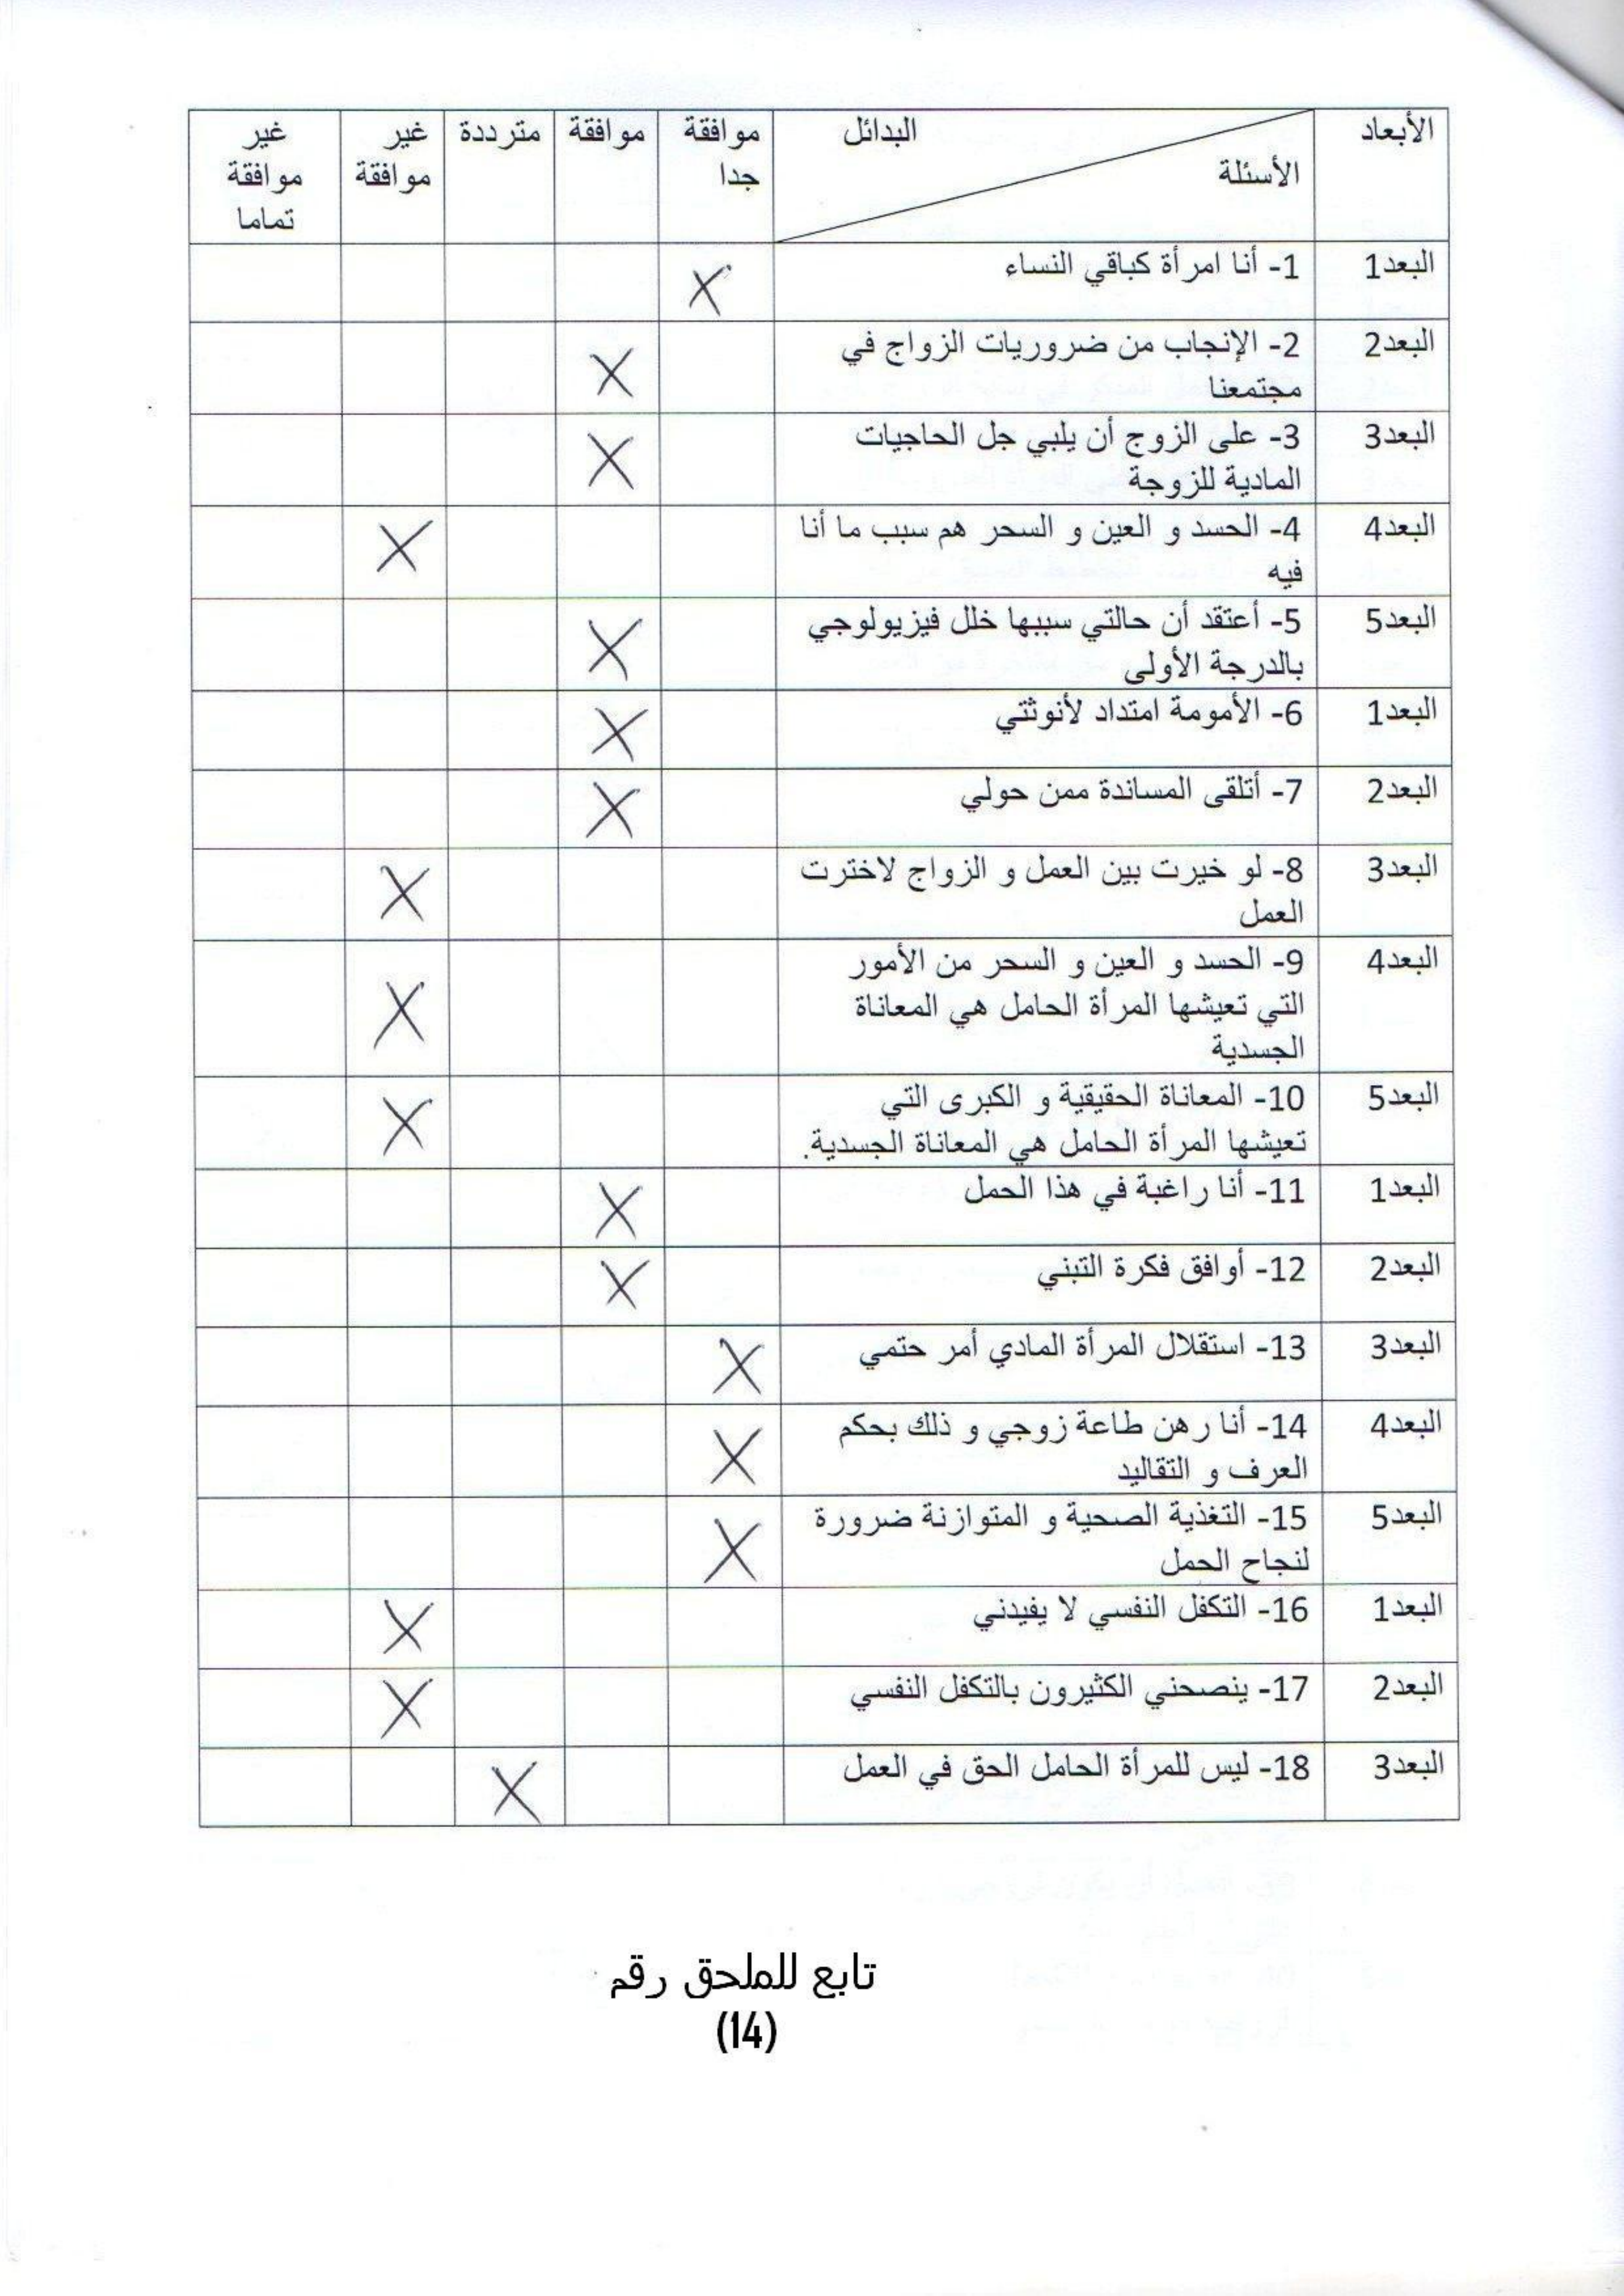 الأبعاد البدائل موافقة موافقة مترددة غير غير
الأسئلة جدا موافقة موافقة
تماما
البعد1 1- أنا امرأة كباقي النساء X
البعد2 2- الإنجاب من ضروريات الزواج في X
مجتمعنا
البعد3 3- على الزوج أن يلبي جل الحاجيات X
المادية للزوجة
البعد4 4- الحسد و العين و السحر هم سبب ما أنا X
فيه
البعد5 5- أعتقد أن حالتي سببها خلل فيزيولوجي X
بالدرجة الأولى
البعد1 6- الأمومة امتداد لأنوثتي X
البعد2 7- أتلقى المساندة ممن حولي X
البعد3 8- لو خيرت بين العمل و الزواج لاخترت X
العمل
البعد4 9- الحسد و العين و السحر من الأمور X
التي تعيشها المرأة الحامل هي المعاناة
الجسدية
البعد5 10- المعاناة الحقيقية و الكبرى التي X
تعيشها المرأة الحامل هي المعاناة الجسدية.
البعد1 11- أنا راغبة في هذا الحمل X
البعد2 12- أوافق فكرة التبني X
البعد3 13- استقلال المرأة المادي أمر حتمي X
البعد4 14- أنا رهن طاعة زوجي و ذلك بحكم X
العرف و التقاليد
البعد5 15- التغذية الصحية و المتوازنة ضرورة X
لنجاح الحمل
البعد1 16- التكفل النفسي لا يفيدني X
البعد2 17- ينصحني الكثيرون بالتكفل النفسي X
البعد3 18- ليس للمرأة الحامل الحق في العمل X
تابع للملحق رقم
(14)